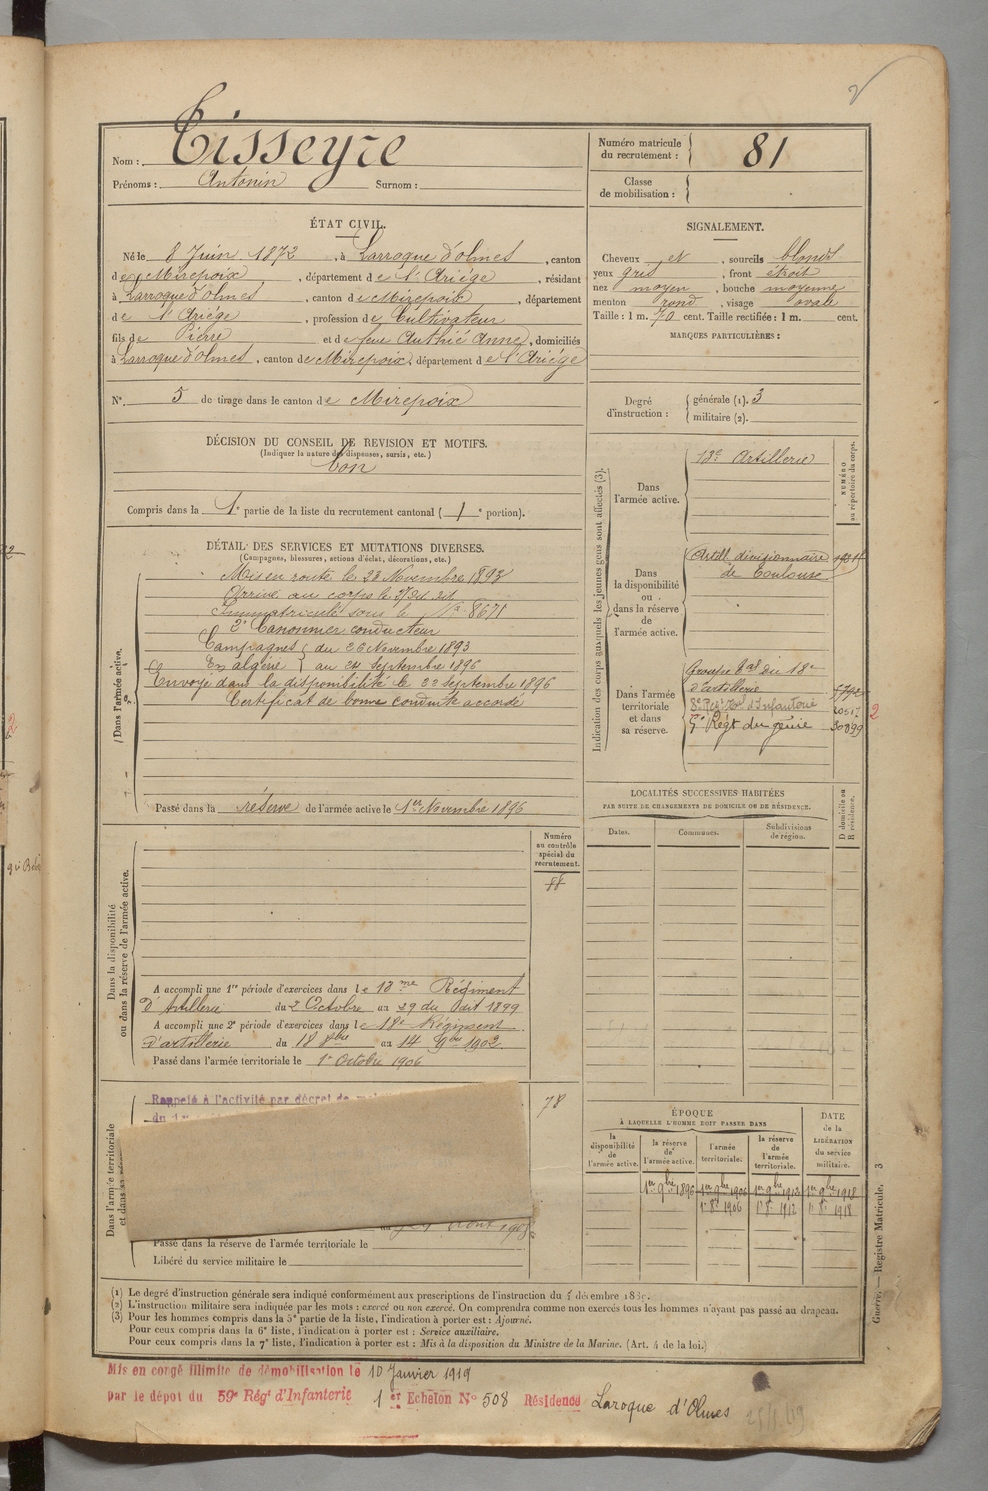 Nom : Tisseyre
Prénoms : Antonin Surnom :
Numéro matricule du recrutement : 81
Classe de mobilisation :
ÉTAT CIVIL.
Né le 8 Juin 1872, à Larroque d'olmes, canton
de Mirepoix, département de l'Ariége, résidant
à Larroque d'olmes, canton de Mirepoix, département
de l'Ariége, profession de Cultivateur
fils de Pierre et de feue Authié Anne, domiciliés
à Larroque d'olmes, canton de Mirepoix, département de l'Ariége
N° 5 de tirage dans le canton de Mirepoix
SIGNALEMENT.
Cheveux et, sourcils blonds
yeux gris, front étroit
nez moyen, bouche moyenne
menton rond, visage ovale
Taille : 1 m. 70 cent. Taille rectifiée : 1 m. cent.
MARQUES PARTICULIÈRES :
Degré d'instruction : générale (1). 3
militaire (2).
DÉCISION DU CONSEIL DE REVISION ET MOTIFS.
(Indiquer la nature des dispenses, sursis, etc.)
bon
Compris dans la 1e partie de la liste du recrutement cantonal ( 1 e portion).
DÉTAIL DES SERVICES ET MUTATIONS DIVERSES.
(Campagnes, blessures, actions d'éclat, décorations, etc.)
Dans l'armée active.
Mis en route le 23 Novembre 1893
Arrivé au corps le
Immatriculé sous le N° 8671
2e Canonnier conducteur
Campagnes du 26 Novembre 1893
En algérie au 24 Septembre 1896
Envoyé dans la disponibilité le 22 Septembre 1896
Certificat de bonne conduite accordé
Passé dans la réserve de l'armée active le 1er Novembre 1896
Indication des corps auxquels les jeunes gens sont affectés (3).
NUMÉRO au répertoire du corps.
Dans l'armée active.
13e Artillerie
Dans la disponibilité ou dans la réserve de l'armée active.
Artill divisionnaire
de Toulouse
Dans l'armée territoriale et dans sa réserve.
Groupe tal du 18e
d'artillerie
d'Infanterie
Regt du génie
2
LOCALITÉS SUCCESSIVES HABITÉES
PAR SUITE DE CHANGEMENTS DE DOMICILE OU DE RÉSIDENCE.
Dates. Communes. Subdivisions de région. D domicile ou R résidence.
Numéro au contrôle spécial du recrutement.
88
Dans la disponibilité ou dans la réserve de l'armée active.
A accompli une 1re période d'exercices dans le 18me Régiment
D'Artillerie du 2 Octobre au 29 du Duit 1899
A accompli une 2e période d'exercices dans le 18e Régiment
D'artillerie du 18 8bre au 14 9bre 1902
Passé dans l'armée territoriale le 1er Octobre 1906
Dans l'armée territoriale et dans sa
Rappelé à l'activité par décret de
78
Août 1908
Passé dans la réserve de l'armée territoriale le
Libéré du service militaire le
ÉPOQUE
À LAQUELLE L'HOMME DOIT PASSER DANS
la disponibilité de l'armée active. la réserve de l'armée active. l'armée territoriale. la réserve de l'armée territoriale.
DATE de la LIBÉRATION du service militaire.
1er 9bre 1896 1er 9bre 1906 1er 9bre 1912 1er 9bre 1918
1er 8e 1906 1er 8e 1912 1er 8e 1918
(1) Le degré d'instruction générale sera indiqué conformément aux prescriptions de l'instruction du décembre
(2) L'instruction militaire sera indiquée par les mots : exercé ou non exercé. On comprendra comme non exercés tous les hommes n'ayant pas passé au drapeau.
(3) Pour les hommes compris dans la 5e partie de la liste, l'indication à porter est : Ajourné.
Pour ceux compris dans la 6e liste, l'indication à porter est : Service auxiliaire.
Pour ceux compris dans la 7e liste, l'indication à porter est : Mis à la disposition du Ministre de la Marine. (Art. 4 de la loi.)
Guerre. — Registre Matricule. 3
Mis en congé illimité de démobilisation le 10 Janvier 1919
par le dépôt du 59e Régt d'Infanterie 1er Echelon N° 508 Résidence Laroque d'Olmes